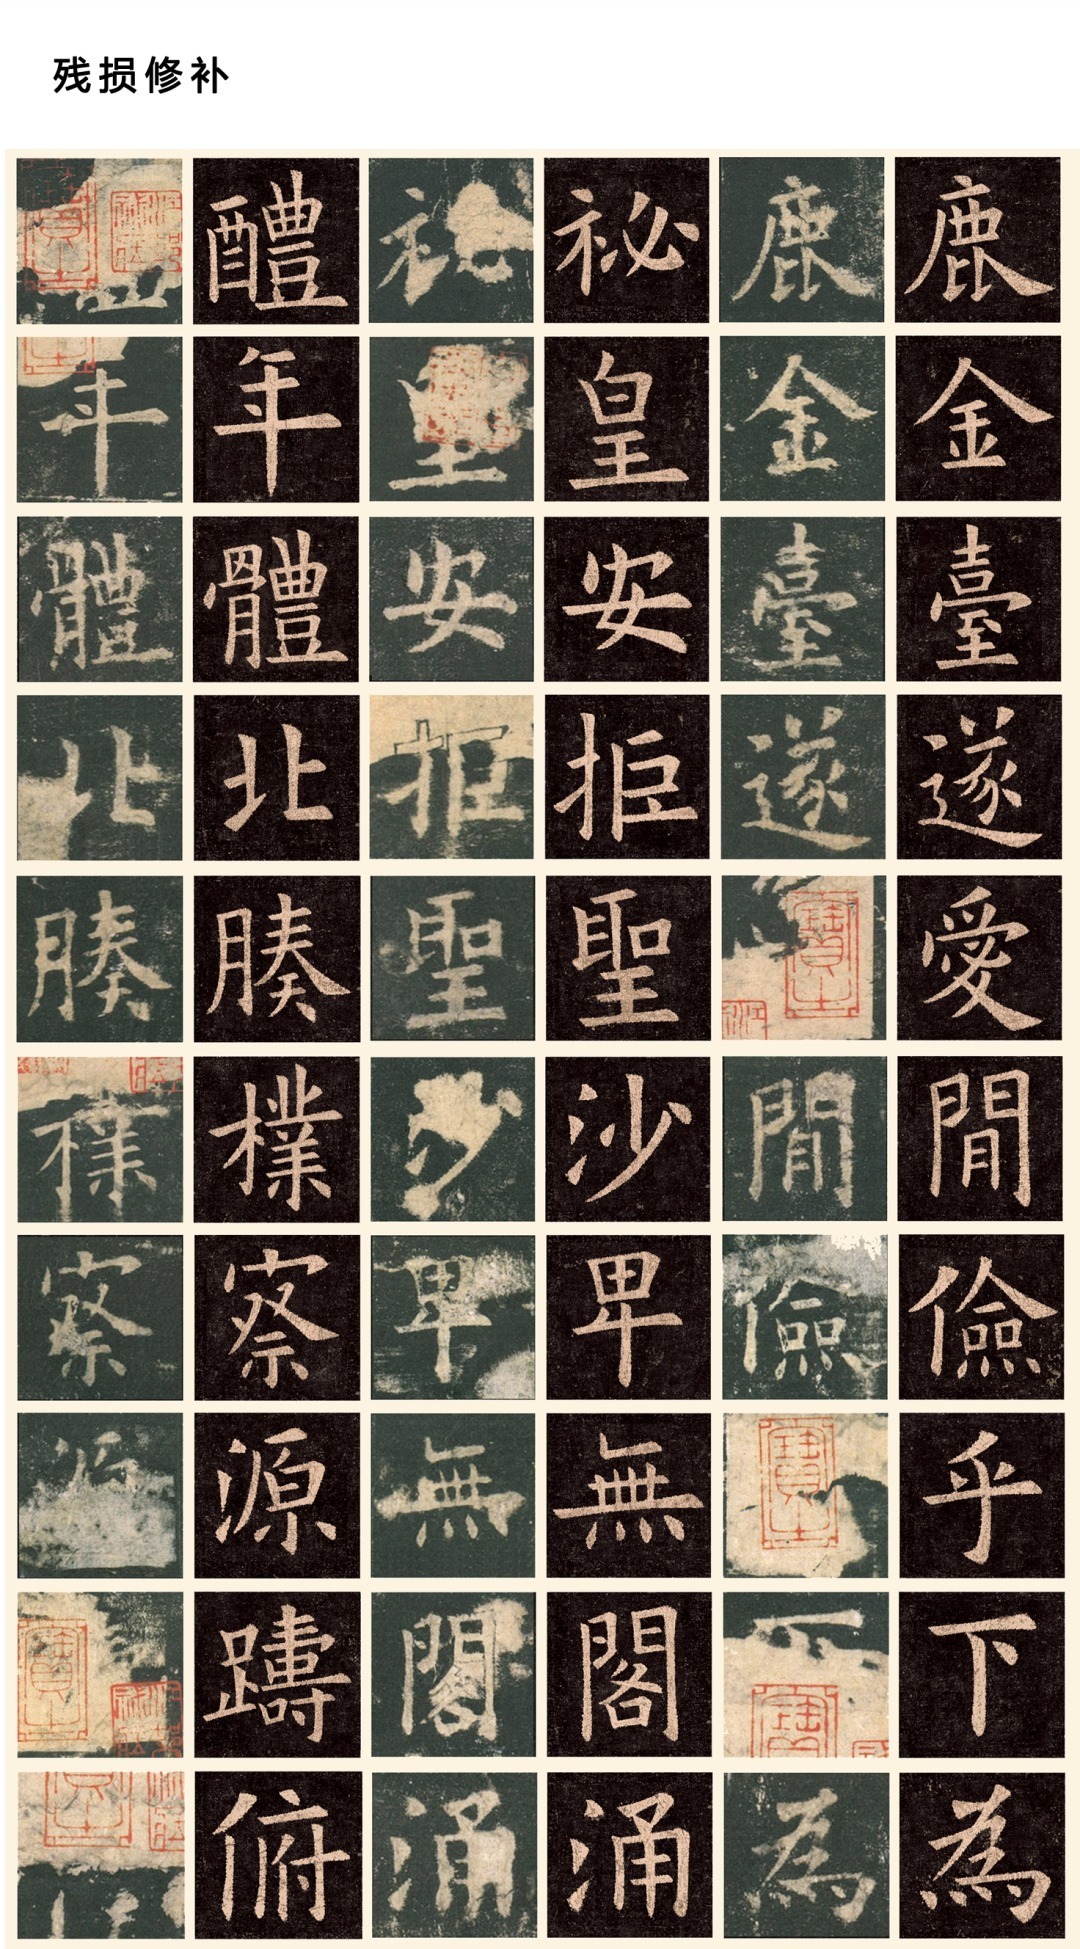 残损修补
醴 祕 祕 鹿 鹿
年 年 皇 皇 金 金
體 體 安 安 臺 臺
北 北 拒 拒 遂 遂
腠 腠 聖 聖 愛
樸 樸 沙 沙 閒 閒
察 察 卑 卑 儉 儉
源 無 無 乎
躊 閣 閣 下
俯 涌 涌 為 為